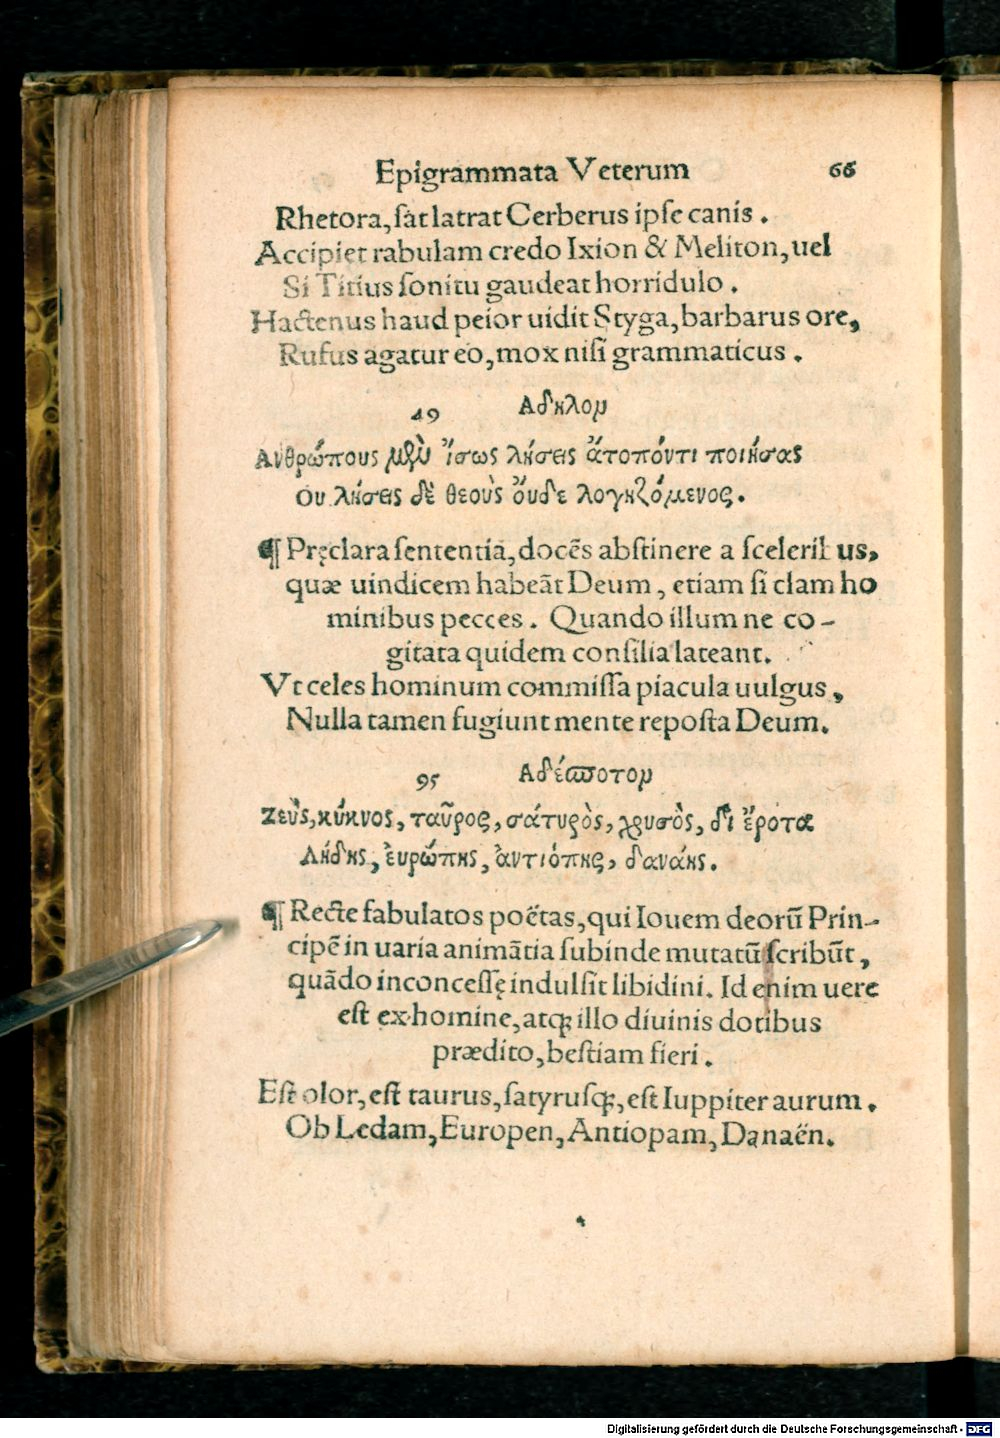 Epigrammata Veterum 66
Rhetora, sat latrat Cerberus ipse canis.
Accipiet rabulam credo Ixion & Meliton, uel
Si Titius sonitu gaudeat horridulo.
Hactenus haud peior uidit Styga, barbarus ore,
Rufus agatur eo, mox nisi grammaticus.
49 Αδηλον
Ανθρώπους μὲν ἴσως λήσεις ἄτοπόντι ποιήσας
Ου λήσεις δὲ θεοὺς ὄυδε λογηζόμενος.
¶ Pręclara sententia, docēs abstinere a scelerib us,
quæ uindicem habeāt Deum, etiam si clam ho
minibus pecces. Quando illum ne co-
gitata quidem consilia lateant.
Vt celes hominum commissa piacula uulgus,
Nulla tamen fugiunt mente reposta Deum.
95 Αδέσποτον
Ζεὺς, κύκνος, ταῦρος, σάτυρὸς, χρυσὸς, δἰ ἔροτα
Λήδης, ἐυρώπης, ἀντιόπης, δανάης.
¶ Recte fabulatos poëtas, qui Iouem deorū Prin-
cipē in uaria animātia subinde mutatū scribūt,
quādo inconcessę indulsit libidini. Id enim uere
est ex homine, atq; illo diuinis dotibus
prædito, bestiam fieri.
Est olor, est taurus, satyrusq;, est Iuppiter aurum.
Ob Ledam, Europen, Antiopam, Danaën.
Digitalisierung gefördert durch die Deutsche Forschungsgemeinschaft - DFG